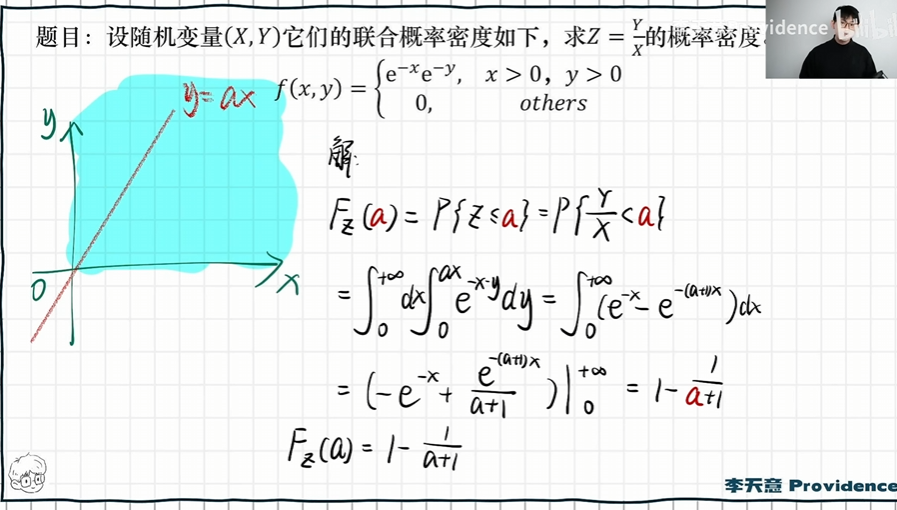 题目：设随机变量(X,Y)它们的联合概率密度如下，求Z = Y/X的概率密度
f(x,y) = { e^{-x}e^{-y}, x > 0, y > 0
0, others
y=ax
y
0
x
解:
F_Z(a) = P{Z≤a} = P{Y/X<a}
= ∫_0^{+∞} dx ∫_0^{ax} e^{-x-y} dy = ∫_0^{+∞} (e^{-x} - e^{-(a+1)x}) dx
= (-e^{-x} + e^{-(a+1)x}/(a+1)) |_0^{+∞} = 1 - 1/(a+1)
F_Z(a) = 1 - 1/(a+1)
李天意 Providence